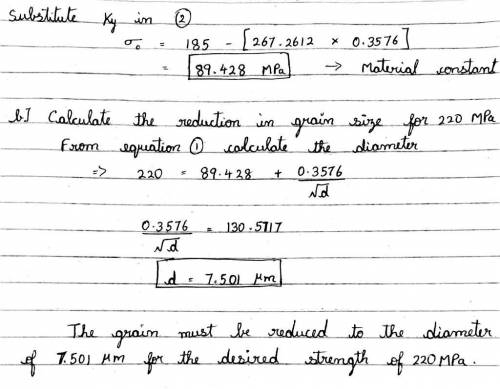 Substitute Ky in ②
σ₀ = 185 - [267.2612 × 0.3576]
= 89.428 MPa → Material constant
b.] Calculate the reduction in grain size for 220 MPa
From equation ① calculate the diameter
=> 220 = 89.428 + 0.3576/√d
0.3576/√d = 130.5717
d = 7.501 μm
The grain must be reduced to the diameter
of 7.501 μm for the desired strength of 220 MPa.